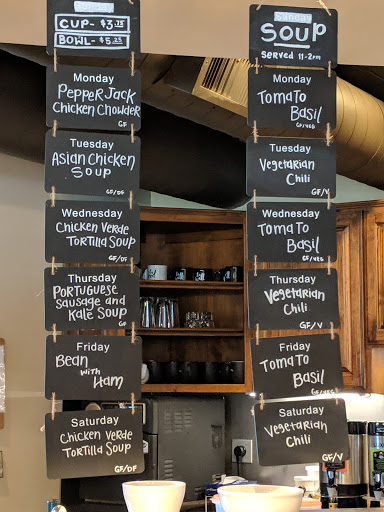 Sunday
CUP - $3.75
BOWL - $5.25
Monday
PEPPER JACK
CHICKEN CHOWDER
GF
Tuesday
ASIAN CHICKEN
SOUP
GF/DF
Wednesday
CHICKEN VERDE
TORTILLA SOUP
GF/DF
Thursday
PORTUGUESE
SAUSAGE AND
KALE SOUP
GF
Friday
BEAN
WITH
HAM
Saturday
CHICKEN VERDE
TORTILLA SOUP
GF/DF
Sunday
SOUP
SERVED 11-2PM
Monday
TOMATO
BASIL
GF/VEG
Tuesday
VEGETARIAN
CHILI
GF/V
Wednesday
TOMATO
BASIL
GF/VEG
Thursday
VEGETARIAN
CHILI
GF/V
Friday
TOMATO
BASIL
GF/VEG
Saturday
VEGETARIAN
CHILI
GF/V